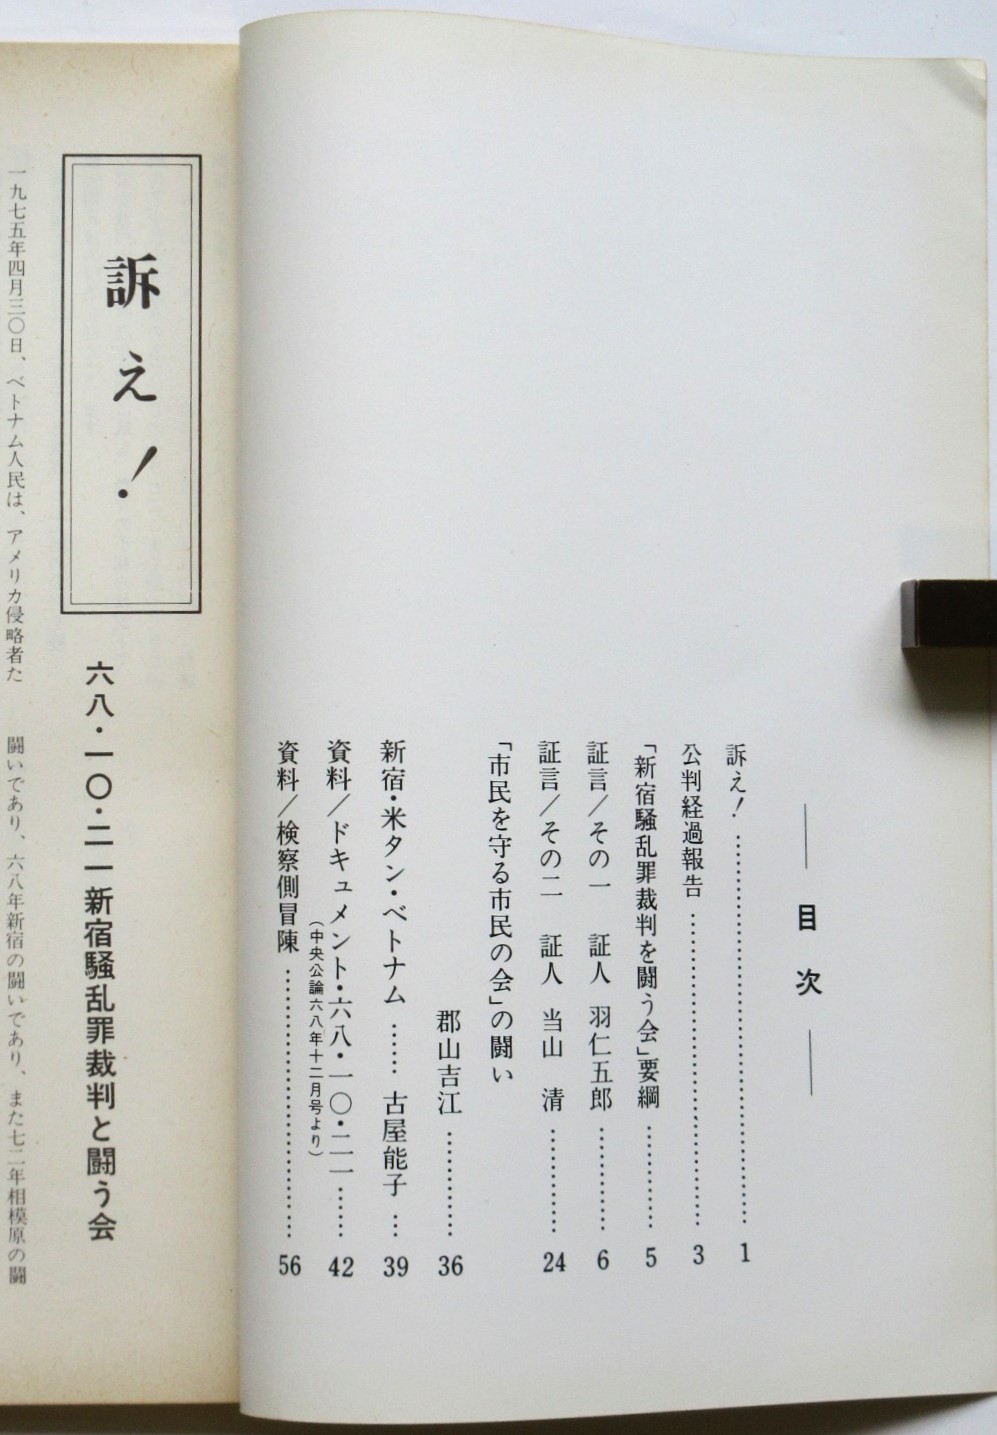 目次
訴え！ 1
公判経過報告 3
「新宿騒乱罪裁判を闘う会」要綱 5
証言／その一 証人 羽仁五郎 6
証言／その二 証人 当山 清 24
「市民を守る市民の会」の闘い
郡山吉江 36
新宿・米タン・ベトナム 古屋能子 39
資料／ドキュメント・六八・一〇・二一 42
（中央公論六八年十二月号より）
資料／検察側冒陳 56
訴え！
六八・一〇・二一新宿騒乱罪裁判と闘う会
一九七五年四月三〇日、ベトナム人民は、アメリカ侵略者た
闘いであり、六八年新宿の闘いであり、また七二年相模原の闘